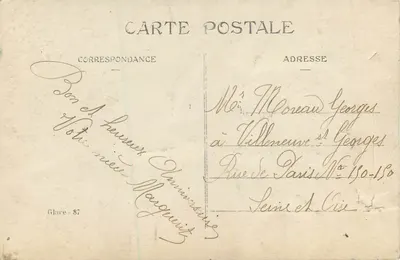 CARTE POSTALE
CORRESPONDANCE
ADRESSE
Bon et heureux Anniversaire
Votre nièce Marguerite
Mr Moreau Georges
à Villeneuve St Georges
Rue de Paris No 150-150
Seine et Oise
Glore - 87